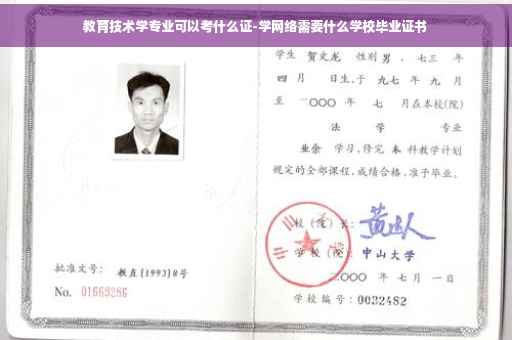 教育技术学专业可以考什么证-学网络需要什么学校毕业证书
学生 贺文龙 性别 男 、七三 年
四 月 日生,于 九七 年 九 月
至 二○○○ 年 七 月在本校(院)
法 学 专业
业余 学习,修完 本 科教学计划
规定的全部课程,成绩合格,准予毕业。
校(院)长:
学校(院): 中山大学
二○○○ 年 七 月 一 日
批准文号: 教直[1993]8号
No. 01669286
学校编号:0032482